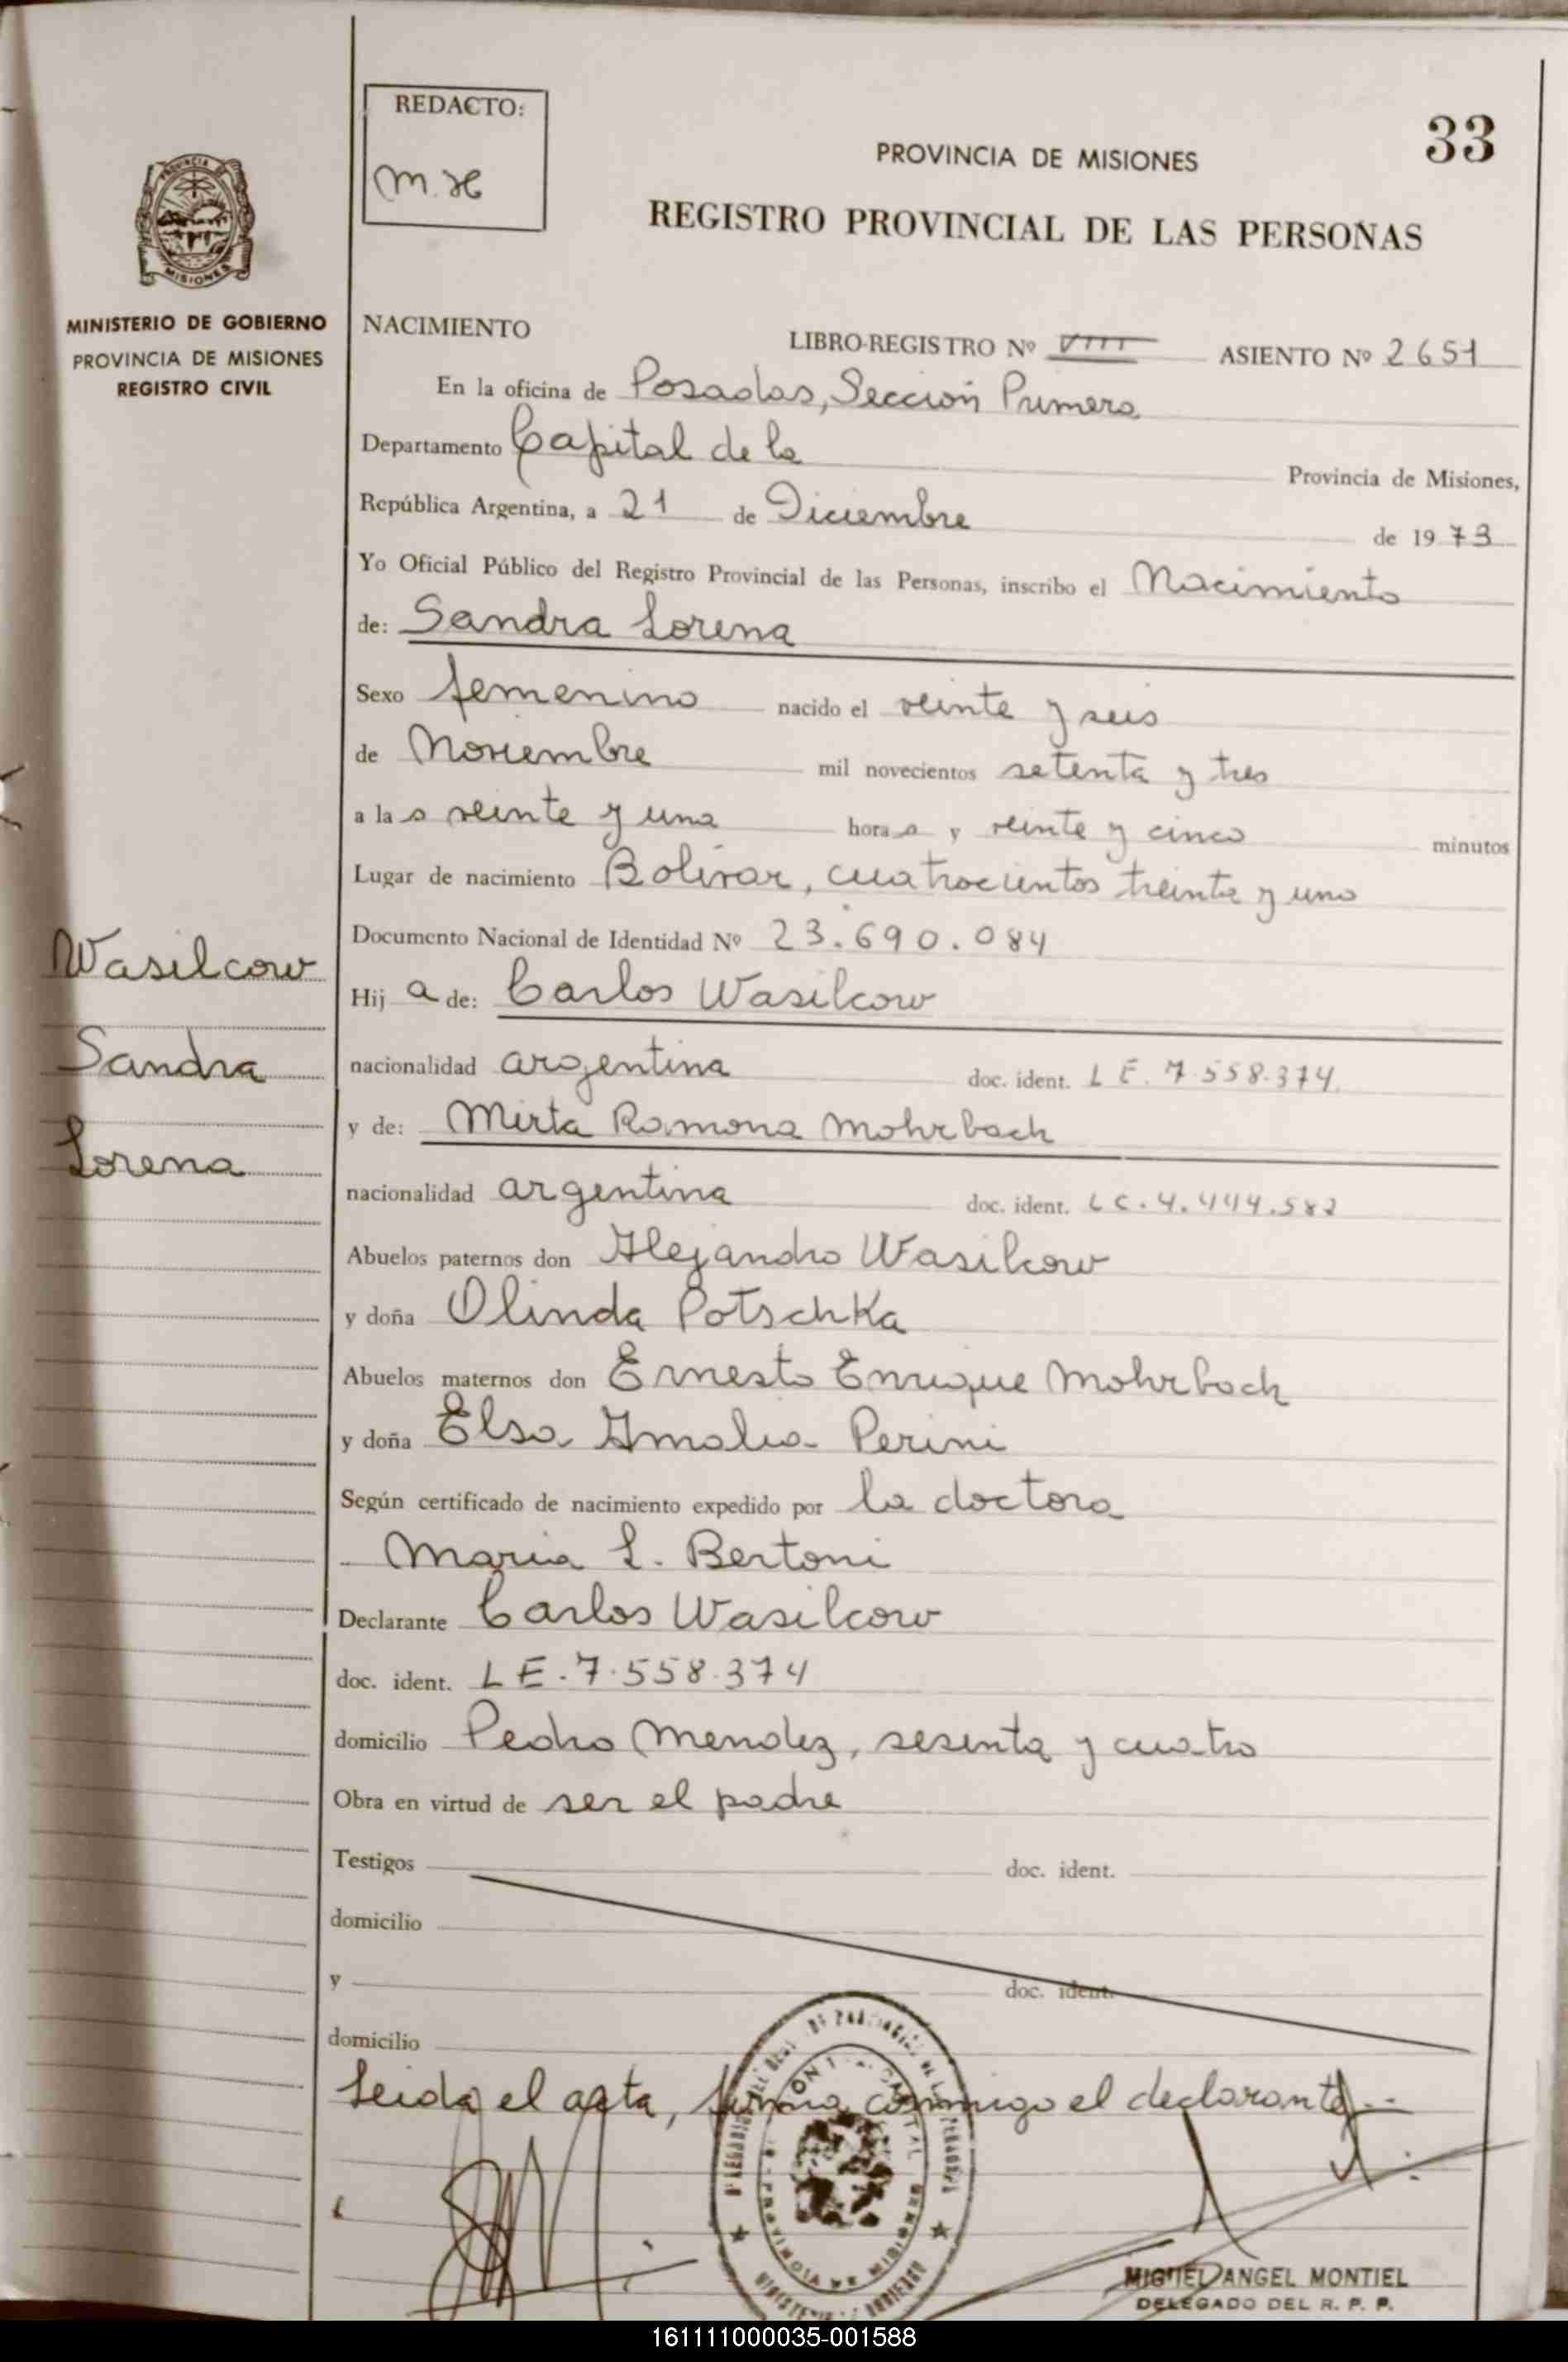 REDACTO:
m.H
33
PROVINCIA DE MISIONES
REGISTRO PROVINCIAL DE LAS PERSONAS
PROVINCIA DE
MISIONES
MINISTERIO DE GOBIERNO
PROVINCIA DE MISIONES
REGISTRO CIVIL
NACIMIENTO
LIBRO-REGISTRO Nº VIII ASIENTO Nº 2651
En la oficina de Posadas, Sección Primera
Departamento Capital de la Provincia de Misiones,
República Argentina, a 21 de Diciembre de 1973
Yo Oficial Público del Registro Provincial de las Personas, inscribo el Nacimiento
de: Sandra Lorena
Sexo femenino nacido el veinte y seis
de Noviembre mil novecientos setenta y tres
a las veinte y una horas y veinte y cinco minutos
Lugar de nacimiento Bolívar, cuatrocientos treinta y uno
Documento Nacional de Identidad Nº 23.690.084
Hija de: Carlos Wasilcow
nacionalidad argentina doc. ident. L E. 7.558.374.
y de: Mirta Ramona Mohrbach
nacionalidad argentina doc. ident. LC.4.444.582
Abuelos paternos don Alejandro Wasilcow
y doña Olinda Potschka
Abuelos maternos don Ernesto Enrique Mohrbach
y doña Elsa Amalia Perini
Según certificado de nacimiento expedido por la doctora
Maria L. Bertoni
Declarante Carlos Wasilcow
doc. ident. LE.7.558.374
domicilio Pedro Mendez, sesenta y cuatro
Obra en virtud de ser el padre
Testigos doc. ident.
domicilio
y doc. ident.
domicilio
Leida el acta, firma conmigo el declarante.--
Wasilcow
Sandra
Lorena
PROVINCIA DE MISIONES
MIGUEL ANGEL MONTIEL
DELEGADO DEL R. P. P.
161111000035-001588